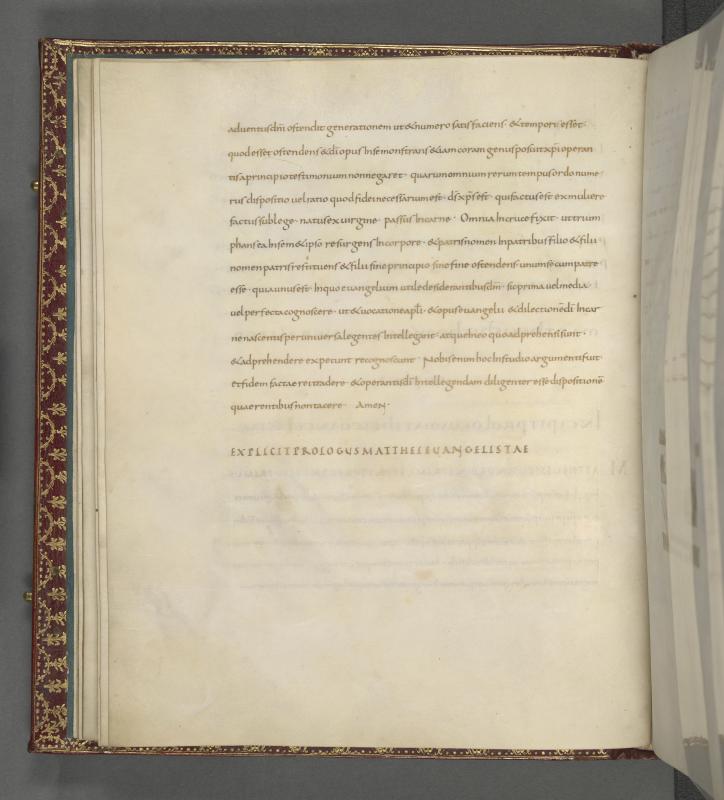 aduentus dni ostendit generationem ut & numero satisfaciens · & tempori · esset ·
quod esset ostendens & di opus Inse monstrans & iam coram genus posuit xpi operan
tis a principio testimonium non negaret · quarum omnium rerum tempus ordo nume
rus dispositio uel ratio quod fidei necessarium est · ds xps est · qui factus est ex muliere
factus sub lege · natus ex uirgine · passus In carne · Omnia In cruce fixit · ut trium
phans ea Insem & ipso resurgens In corpore · & patris nomen In patribus filio & filii
nomen patri restituens & filiis sine principio sine fine ostendens unum se cum patre
esse · quia unus est · In quo euangelium utile desiderantibus dm · sic prima uel media
uel perfecta cognoscere · ut & uocatione apli · & opus euangelii · & dilectione di In car
ne nascentis per uniuersa legentes Intellegant · atque In eo quo adprehensi sunt ·
& adprehendere expetunt recognoscant · Nobis enim hoc In studio argumenti fuit
et fidem factae rei tradere · & operantis di Intellegendam diligenter esse dispositione
quaerentibus non tacere · Amen ·
EXPLICIT PROLOGUS MATTHEI EUANGELISTAE